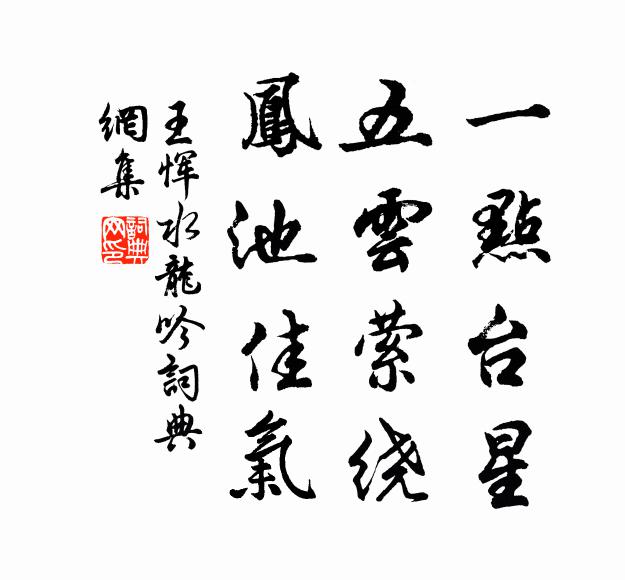 一點台星
五雲萦绕
鳳池佳氣
王恽水龍吟詞典
網集
詞典
网印